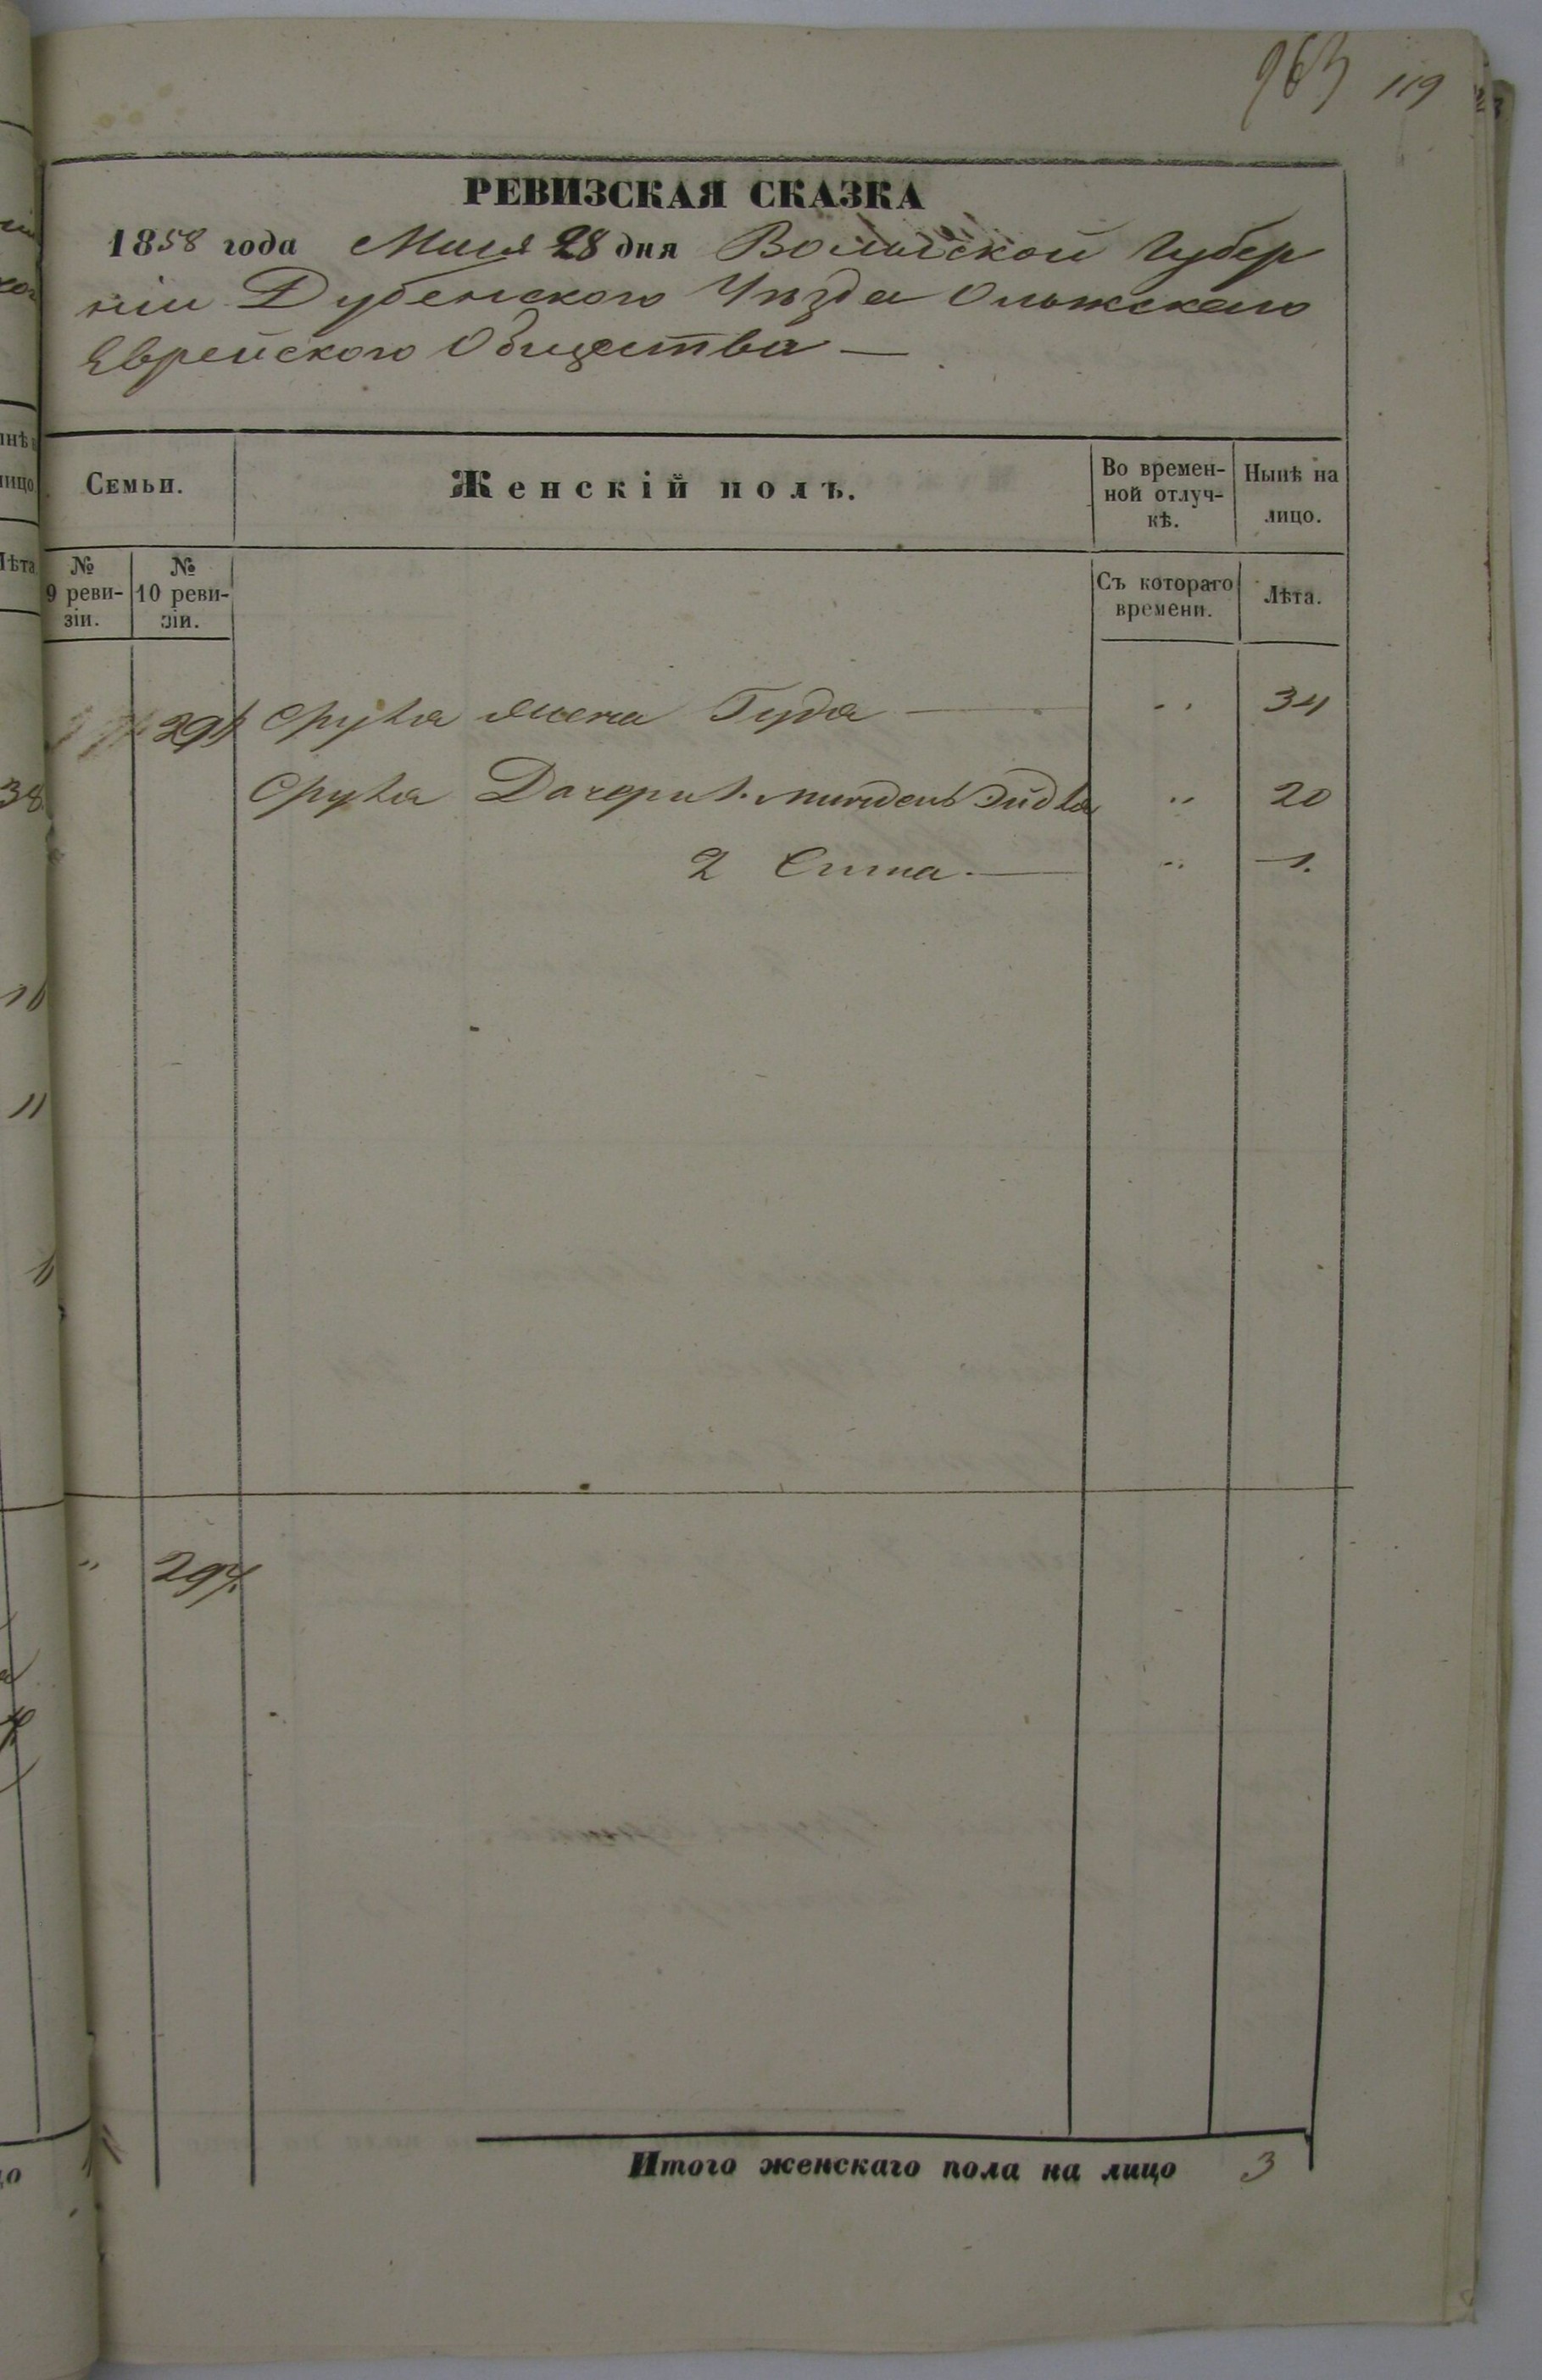 963 119
РЕВИЗСКАЯ СКАЗКА
1858 года Маія 28 дня Волынской Губер
ніи Дубенского Уѣзда Олыжскаго
Еврейского Общества —
Семьи.
Женскій полъ.
Во времен-
ной отлуч-
кѣ.
Нынѣ на
лицо.
№
9 реви-
зіи.
№
10 реви-
зіи.
Съ котораго
времени.
Лѣта.
жена Гуда — " 34
20
2 Сима. — " 1.
" 294.
Итого женскаго пола на лицо 3